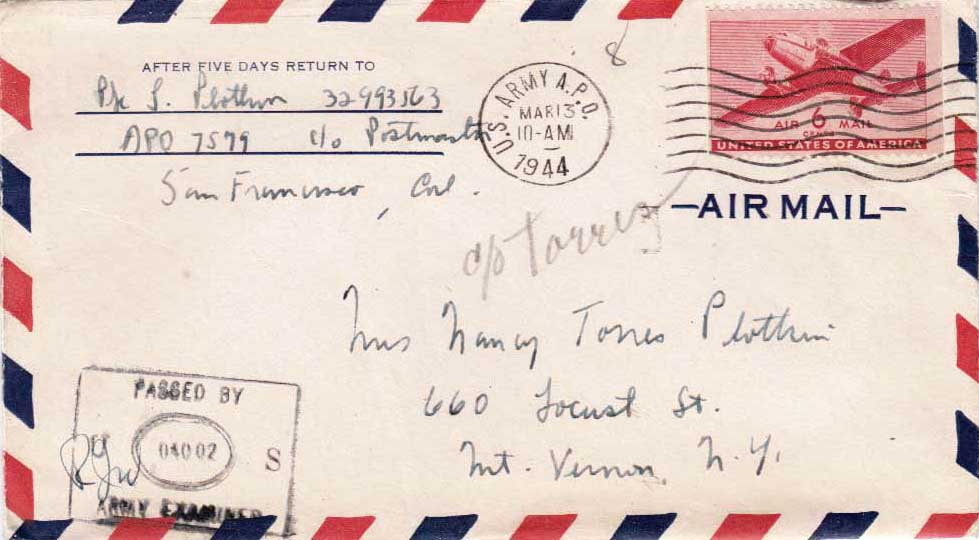 AFTER FIVE DAYS RETURN TO
Pfc S. Plotkin 32993563
APO 7579 c/o Postmaster
San Francisco, Cal.
U.S. ARMY A.P.O.
MAR 13
10-AM
1944
8
AIR 6 MAIL
CENTS
UNITED STATES OF AMERICA
AIR MAIL
c/o Torres
Mrs Nancy Torres Plotkin
660 Locust St.
Mt. Vernon, N.Y.
PASSED BY
U 04002 S
ARMY EXAMINER